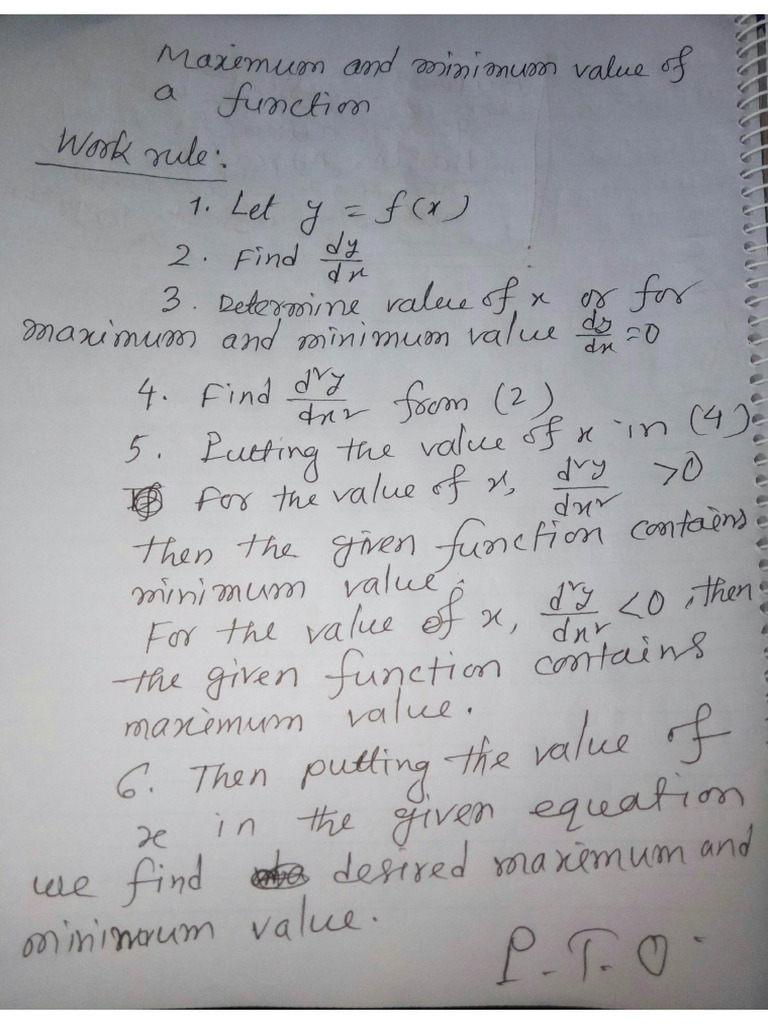 Maximum and minimum value of
a function
Work rule:
1. Let y = f(x)
2. Find dy/dx
3. Determine value of x or for
maximum and minimum value dy/dx = 0
4. Find d²y/dx² from (2)
5. Putting the value of x in (4)
For the value of x, d²y/dx² > 0
then the given function contains
minimum value.
For the value of x, d²y/dx² < 0, then
the given function contains
maximum value.
6. Then putting the value of
x in the given equation
we find desired maximum and
minimum value.
P.T.O.